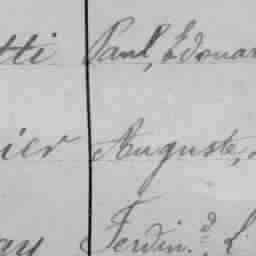 tti Paul, Edouar
ier Auguste,
ay Ferdin.d L